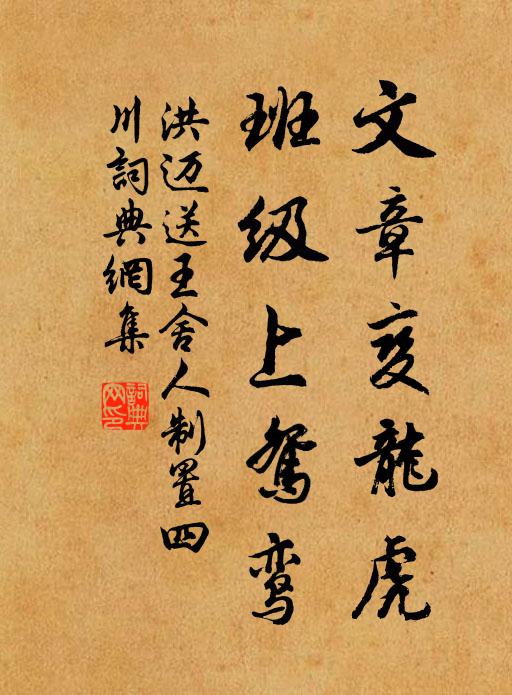 文章变龍虎
班级上鸳鸾
洪迈送王舍人制置四
川詞典網集
詞典网印